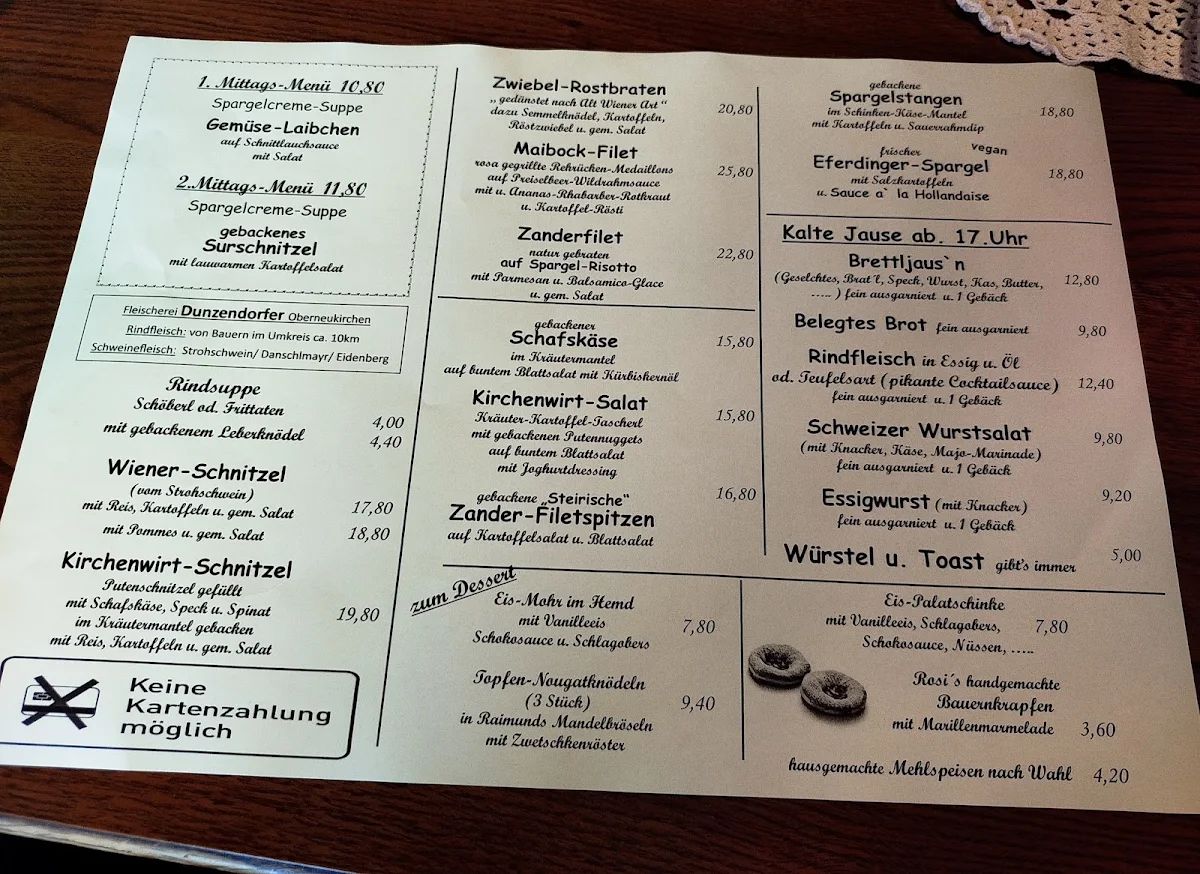 1. Mittags-Menü 10,80
Spargelcreme-Suppe
Gemüse-Laibchen
auf Schnittlauchsauce
mit Salat
2.Mittags-Menü 11,80
Spargelcreme-Suppe
gebackenes
Surschnitzel
mit lauwarmen Kartoffelsalat
Fleischerei Dunzendorfer Oberneukirchen
Rindfleisch: von Bauern im Umkreis ca. 10km
Schweinefleisch: Strohschwein/ Danschlmayr/ Eidenberg
Rindsuppe
Schöberl od. Frittaten 4,00
mit gebackenem Leberknödel 4,40
Wiener-Schnitzel
(vom Strohschwein)
mit Reis, Kartoffeln u. gem. Salat 17,80
mit Pommes u. gem. Salat 18,80
Kirchenwirt-Schnitzel
Putenschnitzel gefüllt
mit Schafskäse, Speck u. Spinat 19,80
im Kräutermantel gebacken
mit Reis, Kartoffeln u. gem. Salat
Keine
Kartenzahlung
möglich
Zwiebel-Rostbraten
„ gedünstet nach Alt Wiener Art “ 20,80
dazu Semmelknödel, Kartoffeln,
Röstzwiebel u. gem. Salat
Maibock-Filet
rosa gegrillte Rehrücken-Medaillons 25,80
auf Preiselbeer-Wildrahmsauce
mit u. Ananas-Rhabarber-Rotkraut
u. Kartoffel-Rösti
Zanderfilet
natur gebraten 22,80
auf Spargel-Risotto
mit Parmesan u. Balsamico-Glace
u. gem. Salat
gebackener
Schafskäse 15,80
im Kräutermantel
auf buntem Blattsalat mit Kürbiskernöl
Kirchenwirt-Salat
Kräuter-Kartoffel-Tascherl 15,80
mit gebackenen Putennuggets
auf buntem Blattsalat
mit Joghurtdressing
gebackene „Steirische“ 16,80
Zander-Filetspitzen
auf Kartoffelsalat u. Blattsalat
gebackene
Spargelstangen
im Schinken-Käse-Mantel 18,80
mit Kartoffeln u. Sauerrahmdip
frischer vegan
Eferdinger-Spargel
mit Salzkartoffeln 18,80
u. Sauce a` la Hollandaise
Kalte Jause ab. 17.Uhr
Brettljaus`n
(Geselchtes, Brat´l, Speck, Wurst, Kas, Butter, 12,80
..... ) fein ausgarniert u. 1 Gebäck
Belegtes Brot fein ausgarniert 9,80
Rindfleisch in Essig u. Öl
od. Teufelsart (pikante Cocktailsauce) 12,40
fein ausgarniert u. 1 Gebäck
Schweizer Wurstsalat 9,80
(mit Knacker, Käse, Majo-Marinade)
fein ausgarniert u. 1 Gebäck
Essigwurst (mit Knacker) 9,20
fein ausgarniert u. 1 Gebäck
Würstel u. Toast gibt's immer 5,00
zum Dessert
Eis-Mohr im Hemd
mit Vanilleeis 7,80
Schokosauce u. Schlagobers
Topfen-Nougatknödeln
(3 Stück) 9,40
in Raimunds Mandelbröseln
mit Zwetschkenröster
Eis-Palatschinke
mit Vanilleeis, Schlagobers, 7,80
Schokosauce, Nüssen, .....
Rosi´s handgemachte
Bauernkrapfen
mit Marillenmarmelade 3,60
hausgemachte Mehlspeisen nach Wahl 4,20